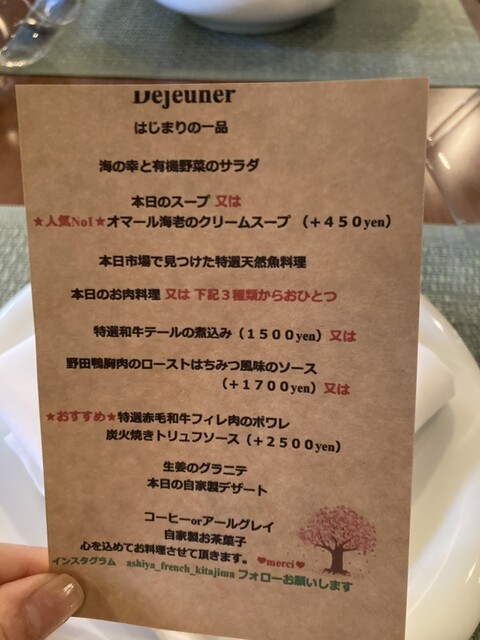 Dejeuner
はじまりの一品
海の幸と有機野菜のサラダ
本日のスープ 又は
★人気No1★オマール海老のクリームスープ （＋４５０yen）
本日市場で見つけた特選天然魚料理
本日のお肉料理 又は 下記３種類からおひとつ
特選和牛テールの煮込み（１５００yen）又は
野田鴨胸肉のローストはちみつ風味のソース
（＋１７００yen）又は
★おすすめ★特選赤毛和牛フィレ肉のポワレ
炭火焼きトリュフソース（＋２５００yen）
生姜のグラニテ
本日の自家製デザート
コーヒーorアールグレイ
自家製お茶菓子
心を込めてお料理させて頂きます。 ♥merci♥
インスタグラム ashiya_french_kitajima フォローお願いします